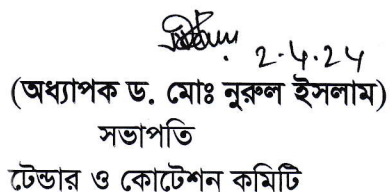 2.4.24
(অধ্যাপক ড. মোঃ নুরুল ইসলাম)
সভাপতি
টেন্ডার ও কোটেশন কমিটি